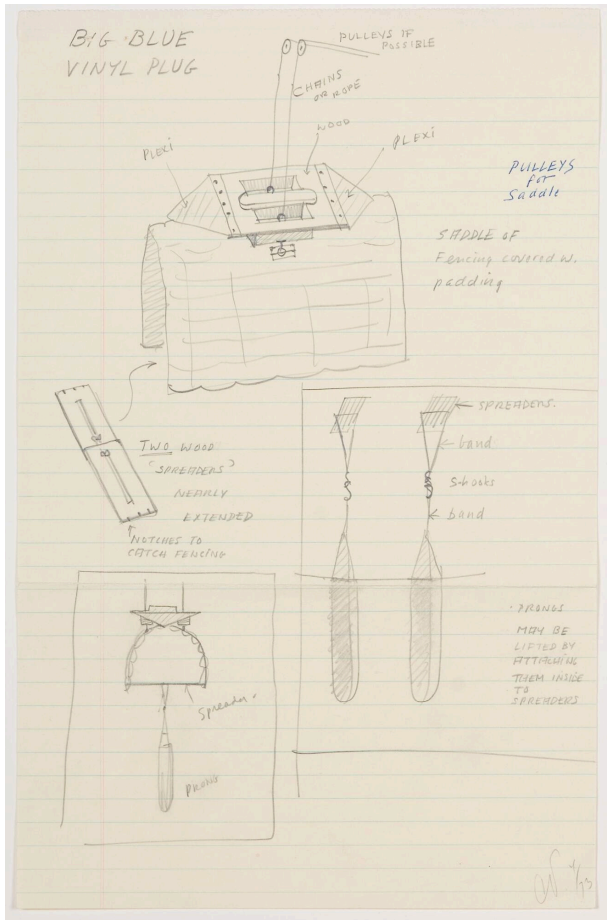 BIG BLUE
VINYL PLUG
PULLEYS IF
POSSIBLE
CHAINS
OR ROPE
WOOD
PLEXI
PLEXI
PULLEYS
for
Saddle
SADDLE OF
Fencing covered w.
padding
TWO WOOD
"SPREADERS"
NEARLY
EXTENDED
NOTCHES TO
CATCH FENCING
SPREADERS.
band
S-hooks
band
· PRONGS
MAY BE
LIFTED BY
ATTACHING
THEM INSIDE
TO
SPREADERS
Spreader.
PRONG
/73